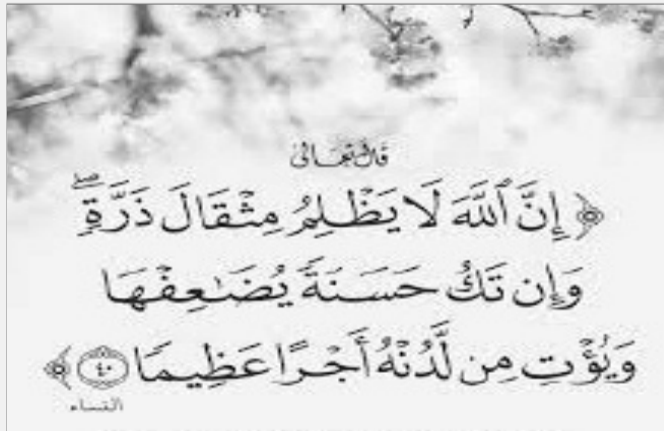 قال تعالى
﴿ إِنَّ ٱللَّهَ لَا يَظْلِمُ مِثْقَالَ ذَرَّةٍۖ
وَإِن تَكُ حَسَنَةً يُضَٰعِفْهَا
وَيُؤْتِ مِن لَّدُنْهُ أَجْرًا عَظِيمًا ٤٠ ﴾
النساء